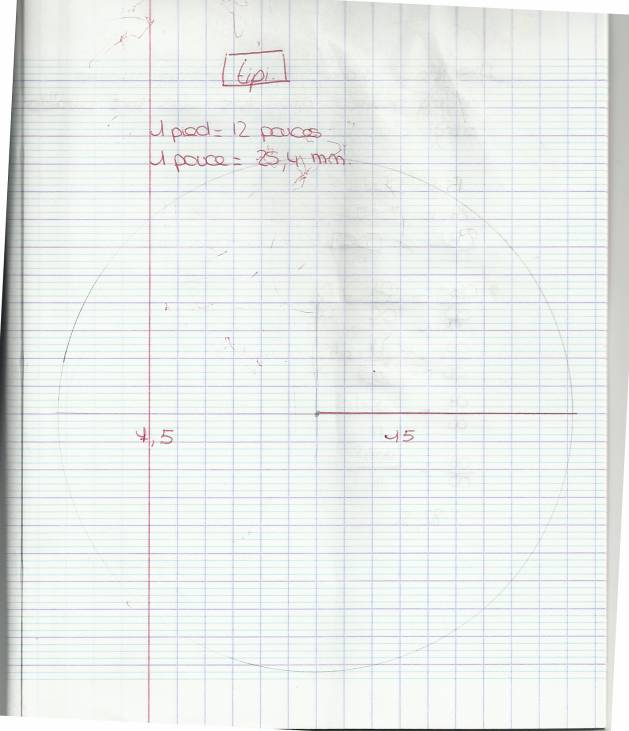 tipi.
1 pied = 12 pouces
1 pouce = 25,4 mm.
7,5
15